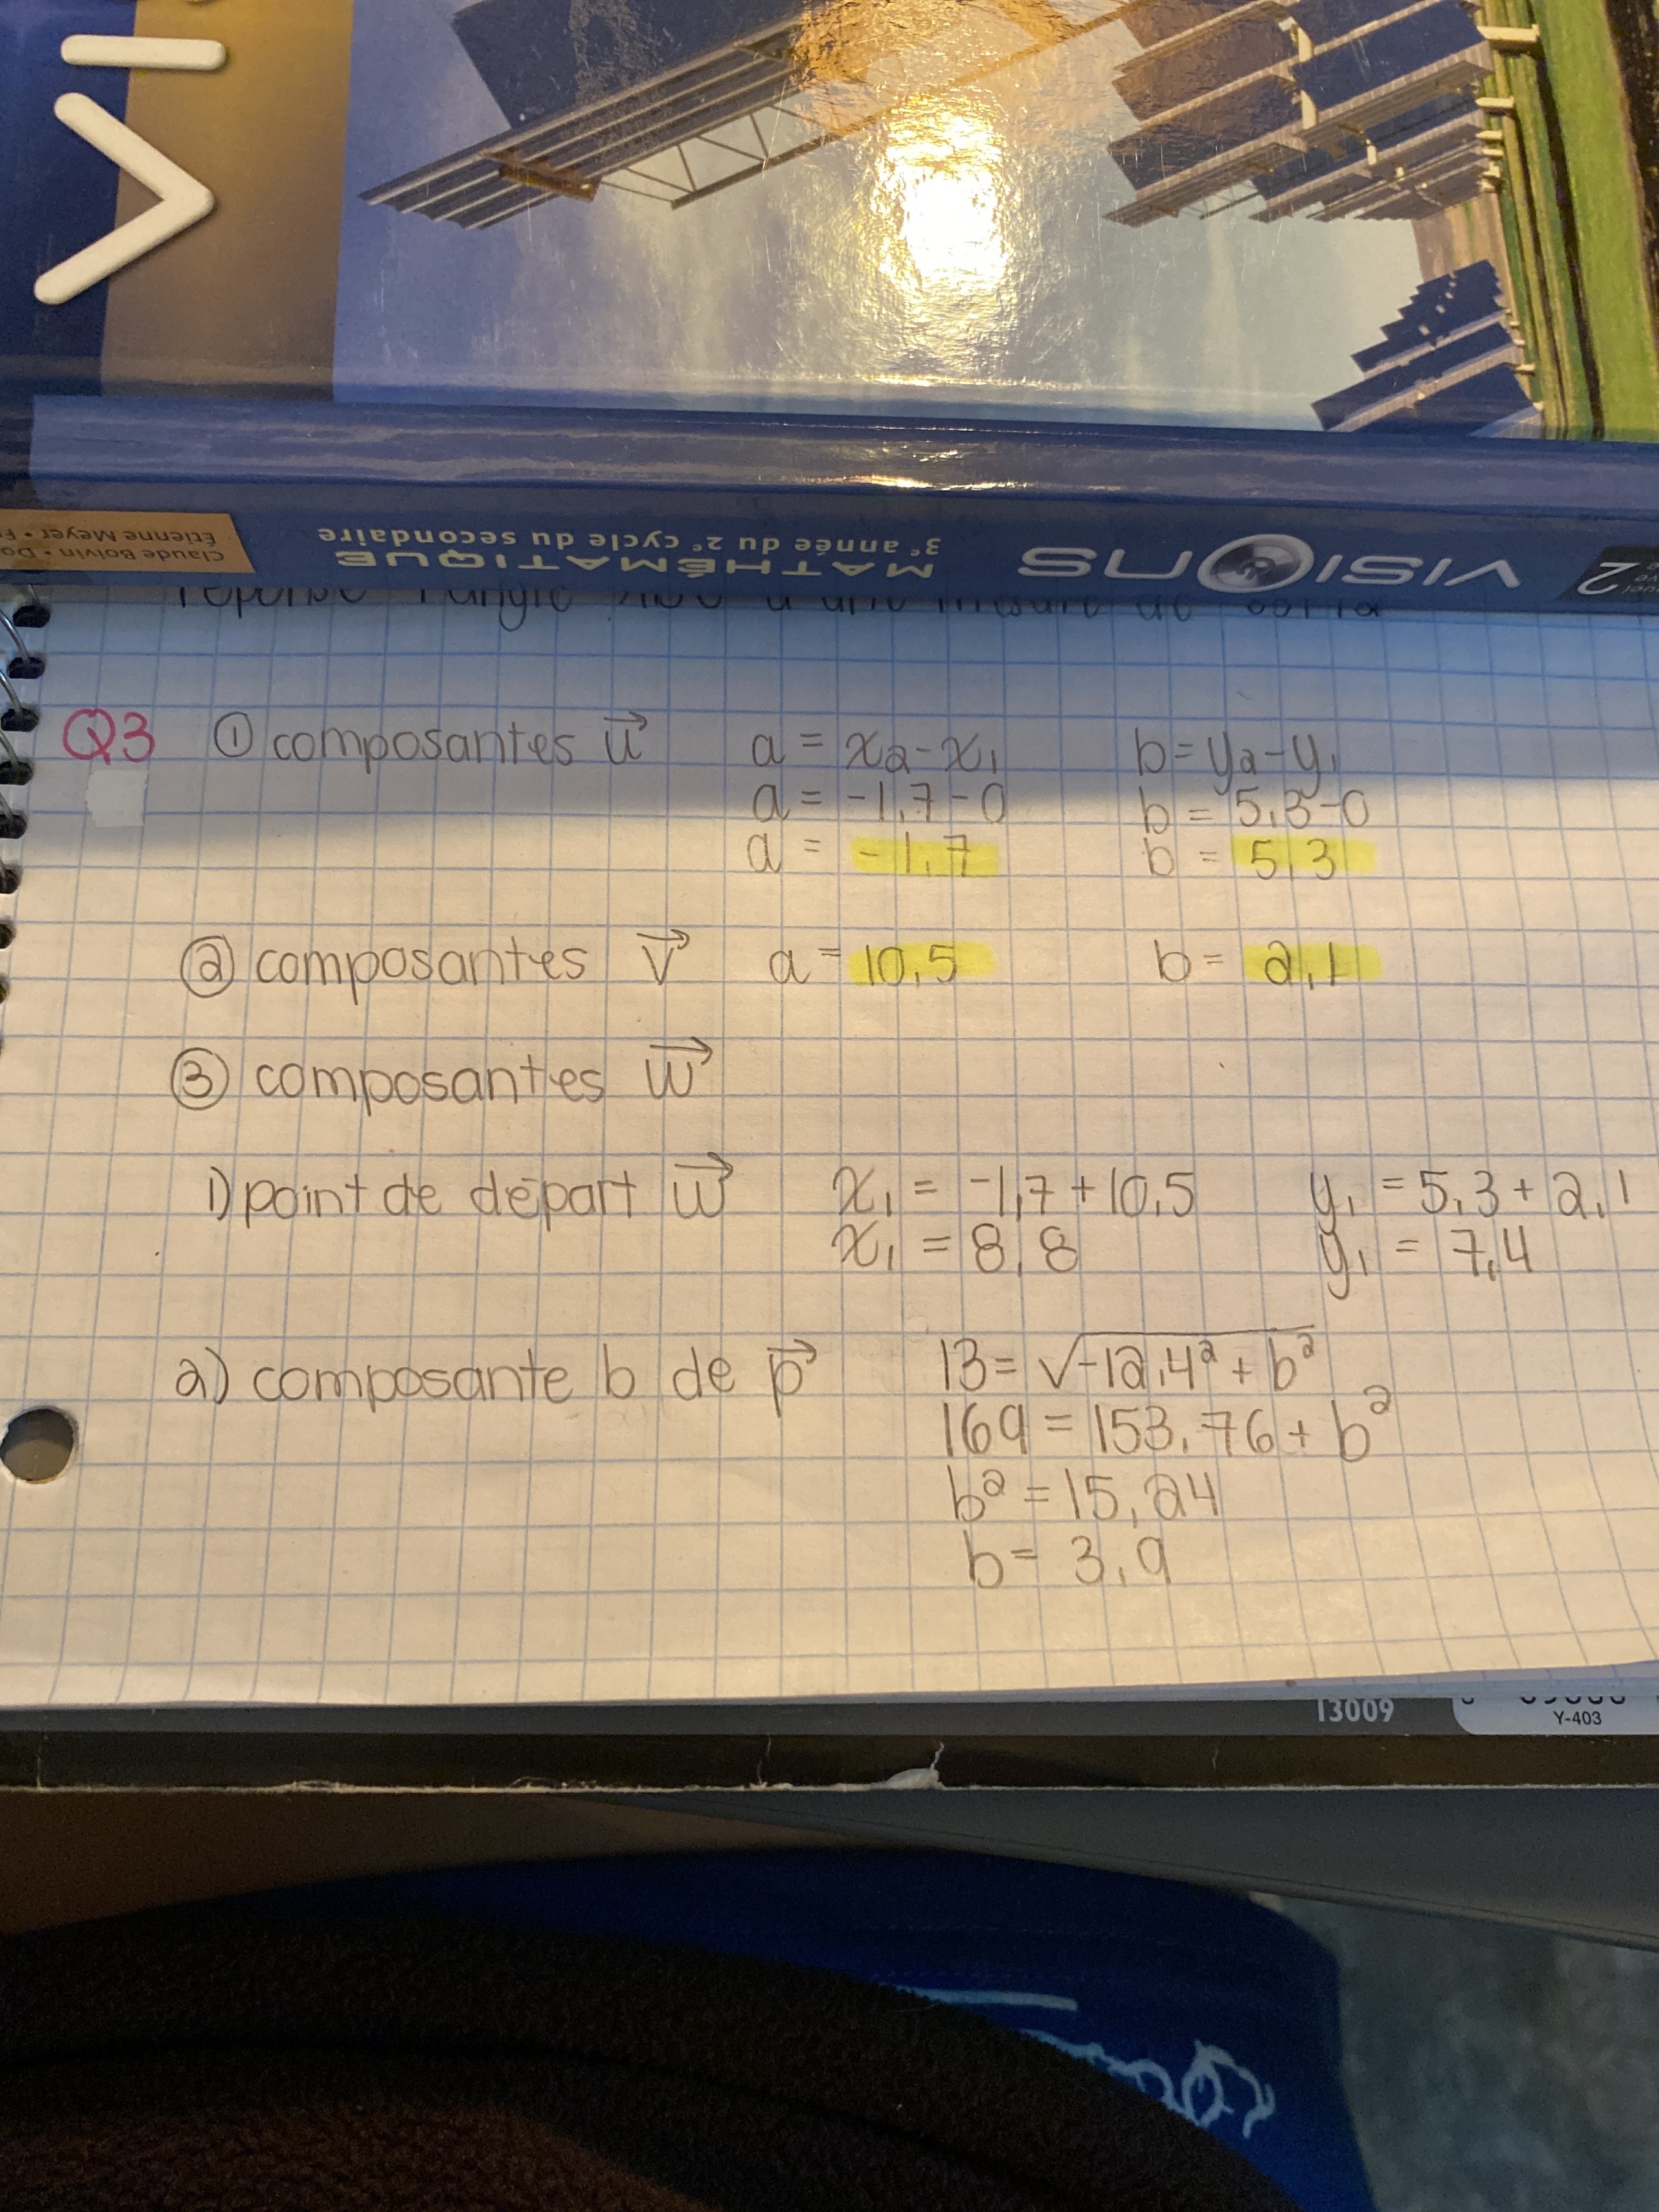 VISIONS
MATHÉMATIQUE
3e année du 2e cycle du secondaire
Claude Boivin • Do
Étienne Meyer • F
2
Q3 ① composantes u⃗ a = x₂ - x₁ b = y₂ - y₁
a = -1,7 - 0 b = 5,3 - 0
a = -1,7 b = 5,3
② composantes v⃗ a = 10,5 b = 2,1
③ composantes w⃗
1) point de départ w⃗ x₁ = -1,7 + 10,5 y₁ = 5,3 + 2,1
x₁ = 8,8 y₁ = 7,4
2) composante b de p⃗ 13 = √-12,4² + b²
169 = 153,76 + b²
b² = 15,24
b = 3,9
13009
Y-403